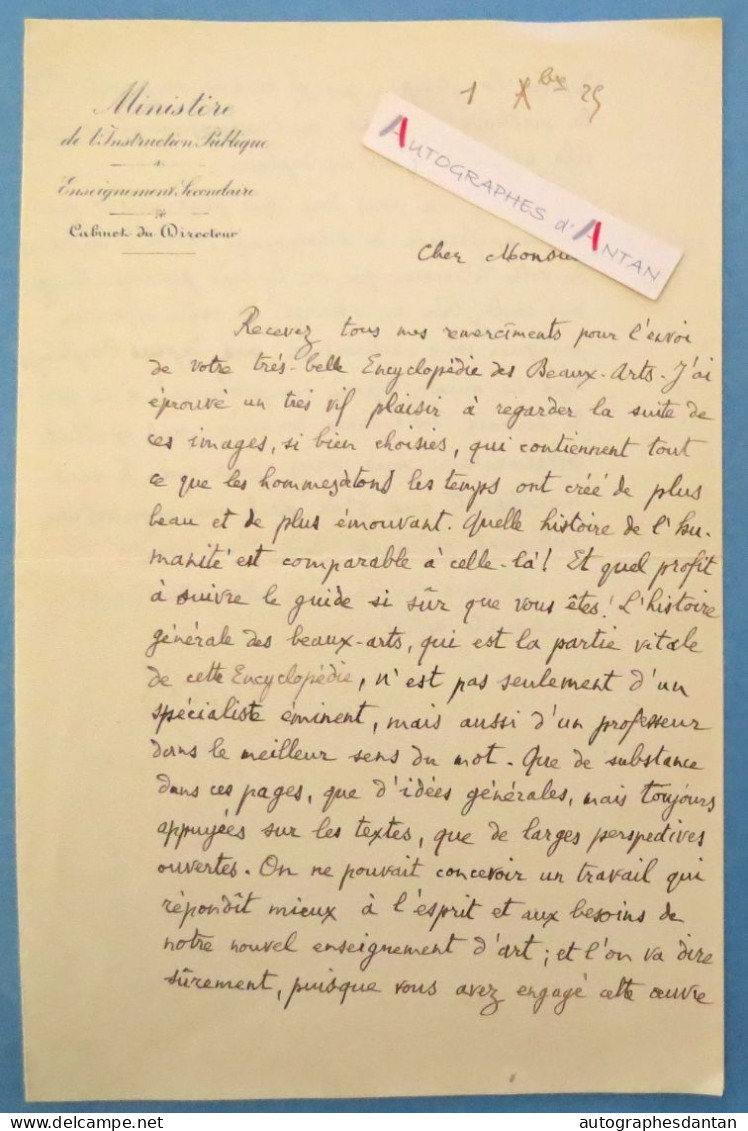 Ministère
de l'Instruction Publique
Enseignement Secondaire
Cabinet du Directeur
1 Xbre 25
AUTOGRAPHES d'ANTAN
Cher Monsieu
Recevez tous mes remercîments pour l'envoi
de votre très-belle Encyclopédie des Beaux-Arts. J'ai
éprouvé un très vif plaisir à regarder la suite de
ces images, si bien choisies, qui contiennent tout
ce que les hommes de tous les temps ont créé de plus
beau et de plus émouvant. Quelle histoire de l'hu-
manité est comparable à celle-là! Et quel profit
à suivre le guide si sûr que vous êtes! L'histoire
générale des beaux-arts, qui est la partie vitale
de cette Encyclopédie, n'est pas seulement d'un
spécialiste éminent, mais aussi d'un professeur
dans le meilleur sens du mot. Que de substance
dans ces pages, que d'idées générales, mais toujours
appuyées sur les textes, que de larges perspectives
ouvertes. On ne pouvait concevoir un travail qui
répondît mieux à l'esprit et aux besoins de
notre nouvel enseignement d'art; et l'on va dire
sûrement, puisque vous avez engagé cette œuvre
delcampe.net
autographesdantan